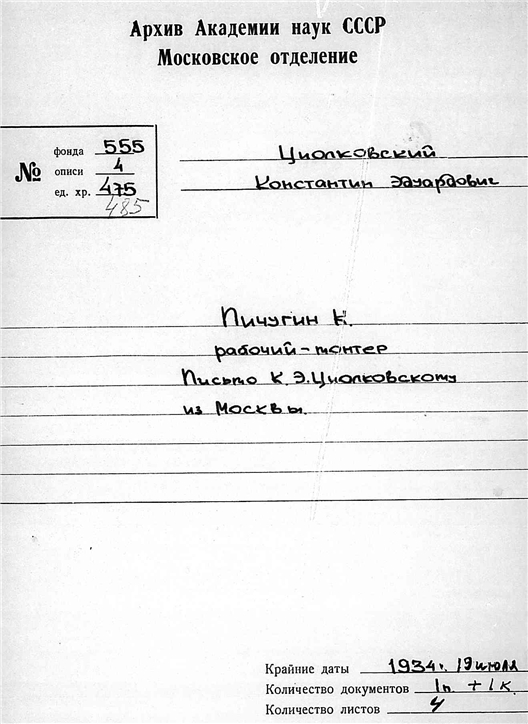 Архив Академии наук СССР
Московское отделение
№
фонда 555
описи 4
ед. хр. 475
485
Циолковский
Константин Эдуардович
Пичугин К.
рабочий-монтер
Письмо К.Э.Циолковскому
из Москвы.
Крайние даты 1934г. 19 июля
Количество документов 1п. + 1к.
Количество листов 4